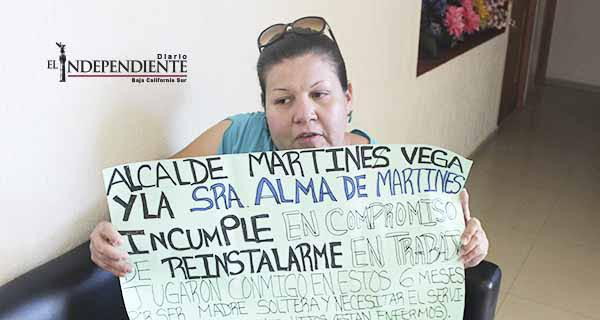 Diario
EL INDEPENDIENTE
Baja California Sur
ALCALDE MARTINES VEGA
Y LA SRA. ALMA DE MARTINES
INCUMPLE EN COMPROMISO
DE REINSTALARME EN TRABAJO
JUGARON CONMIGO EN ESTOS 6 MESES
POR SER MADRE SOLTERA Y NECESITAR EL SERVI-
(ESTAN ENFERMOS).